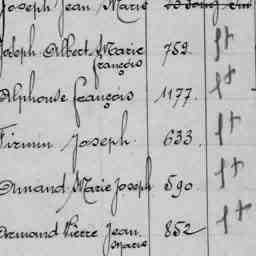 Joseph Jean Marie
Joseph Albert Marie 759. ft
françois
Alphonse françois 1177. ft
Firmin Joseph. 633. ft
Armand Marie Joseph 590. ft
Armand Pierre Jean. 852 ft
Marie